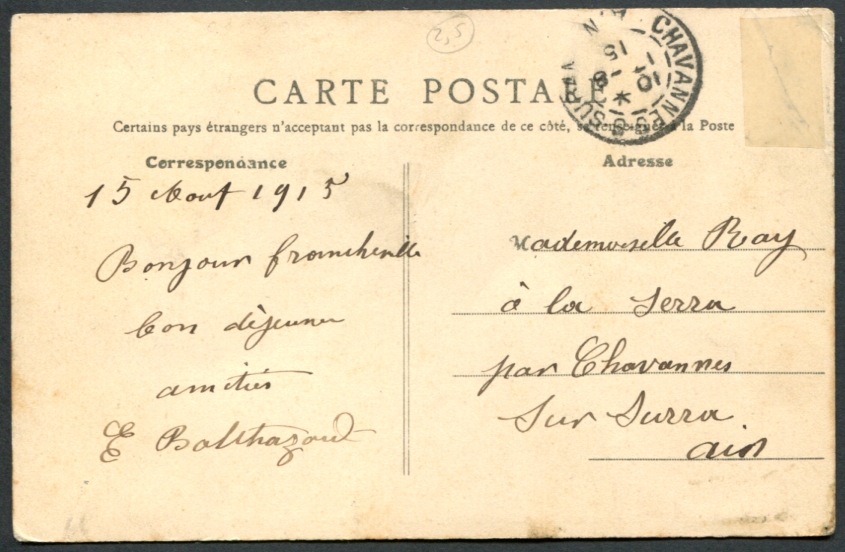 2,5
CHAVANNES S SURAN AIN
15
CARTE POSTALE
Certains pays étrangers n'acceptant pas la correspondance de ce côté, se renseigner à la Poste
Correspondance
Adresse
15 Aout 1915
Bonjour francheville
bon déjeuner
amitiés
E Balthazard
Mademoiselle Ray
à la Serra
par Chavannes
Sur Surra
ain